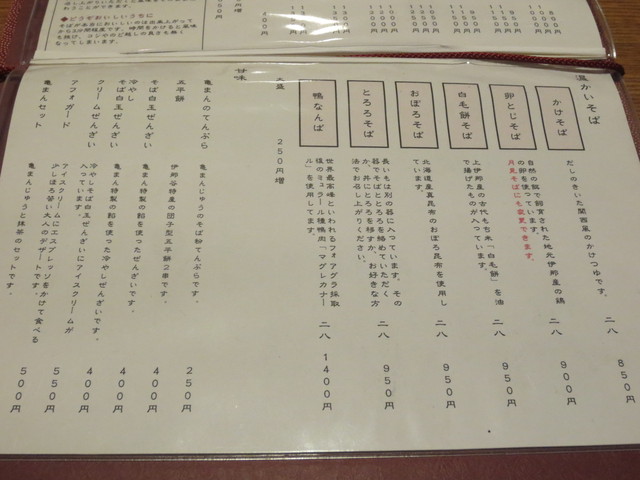 温かいそば
かけそば
だしのきいた関西風のかけつゆです。
850円
卵とじそば
自然の餌で飼育された地元伊那産の鶏
の卵を使っています。
月見そばにも変更できます。
二八
900円
白毛餅そば
上伊那産の古代もち米「白毛餅」を油
で揚げたものが入っています。
二八
950円
おぼろそば
北海道産真昆布のおぼろ昆布を使用し
ています。
二八
950円
とろろそば
長いもは別の器に入っています。その
器でそばととろろを絡めていただく
か、丼にとろろを移すか、お好きな方
法でお召し上がりください。
二八
950円
鴨なんば
世界最高峰といわれるフォアグラ採取
後のミュラール種鴨肉「マグレカナー
ル」を使用してます。
二八
1400円
大盛
250円増
甘味
亀まんのてんぷら
亀まんじゅうのそば粉てんぷらです。
250円
五平餅
伊那谷特産の団子型五平餅2串です。
400円
そば白玉ぜんざい
亀まん特製の餡を使ったぜんざいです。
400円
冷やし
そば白玉ぜんざい
亀まん特製の餡を使った冷やしぜんざいです。
400円
クリームぜんざい
冷やしそば白玉ぜんざいにアイスクリームが
入っています。
550円
アフォガード
アイスクリームにエスプレッソをかけて食べる
少しほろ苦い大人のデザートです。
500円
亀まんセット
亀まんじゅうと抹茶のセットです。
◆どうぞおいしいうちに
そばが本当においしいのは出来上がって
から5分間程度です。時間をかけると風味
も抜け、コシやのど越しの良さも無く
なってしまいます。